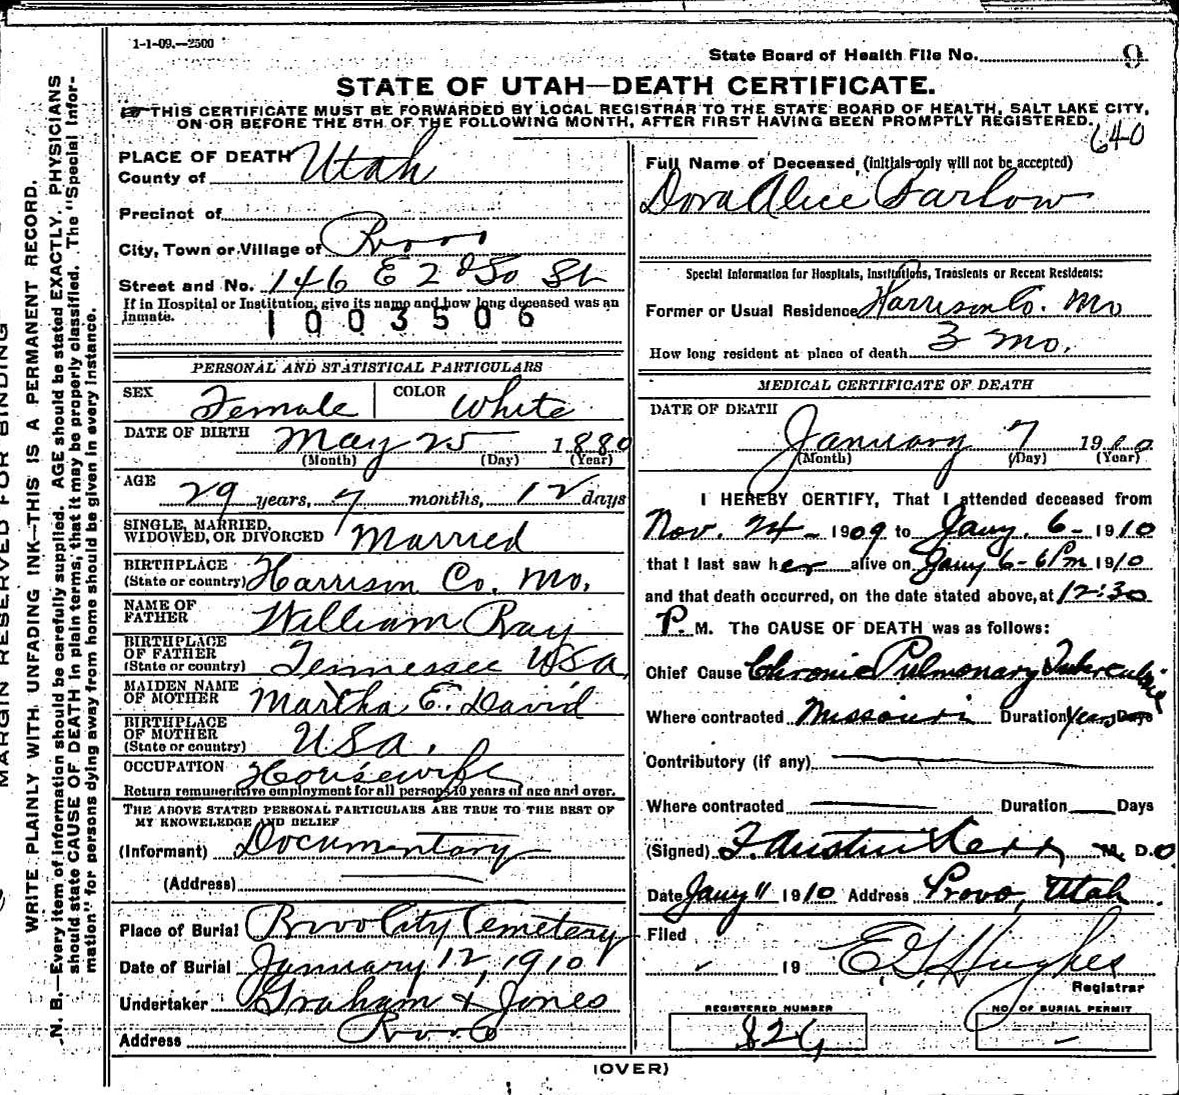 1-1-09.—2500
State Board of Health File No. 9
STATE OF UTAH—DEATH CERTIFICATE.
THIS CERTIFICATE MUST BE FORWARDED BY LOCAL REGISTRAR TO THE STATE BOARD OF HEALTH, SALT LAKE CITY,
ON OR BEFORE THE 8TH OF THE FOLLOWING MONTH, AFTER FIRST HAVING BEEN PROMPTLY REGISTERED.
640
MARGIN RESERVED FOR BINDING
WRITE PLAINLY WITH UNFADING INK—THIS IS A PERMANENT RECORD.
N. B.—Every item of information should be carefully supplied. AGE should be stated EXACTLY. PHYSICIANS
should state CAUSE OF DEATH in plain terms, that it may be properly classified. The "Special Infor-
mation" for persons dying away from home should be given in every instance.
PLACE OF DEATH
County of Utah
Precinct of
City, Town or Village of Provo
Street and No. 146 E 2d So St
If in Hospital or Institution, give its name and how long deceased was an
inmate.
1003506
PERSONAL AND STATISTICAL PARTICULARS
SEX Female COLOR White
DATE OF BIRTH May 25 1880
(Month) (Day) (Year)
AGE 29 years, 7 months, 12 days
SINGLE, MARRIED,
WIDOWED, OR DIVORCED Married
BIRTHPLACE
(State or country) Harrison Co. Mo.
NAME OF
FATHER William Ray
BIRTHPLACE
OF FATHER
(State or country) Tennessee USA
MAIDEN NAME
OF MOTHER Martha E. David
BIRTHPLACE
OF MOTHER
(State or country) USA.
OCCUPATION Housewife
Return remunerative employment for all persons 10 years of age and over.
THE ABOVE STATED PERSONAL PARTICULARS ARE TRUE TO THE BEST OF
MY KNOWLEDGE AND BELIEF
(Informant) Documentary
(Address)
Place of Burial Provo City Cemetery
Date of Burial January 12, 1910
Undertaker Graham & Jones
Address Provo
Full Name of Deceased, (initials only will not be accepted)
Dora Alice Farlow
Special Information for Hospitals, Institutions, Transients or Recent Residents:
Former or Usual Residence Harrison Co. Mo
How long resident at place of death 3 mo.
MEDICAL CERTIFICATE OF DEATH
DATE OF DEATH
January 7 1910
(Month) (Day) (Year)
I HEREBY CERTIFY, That I attended deceased from
Nov. 24 - 1909 to Jany. 6 - 1910
that I last saw her alive on Jany 6 - 6 Pm 1910
and that death occurred, on the date stated above, at 12:30
P. M. The CAUSE OF DEATH was as follows:
Chief Cause Chronic Pulmonary Tuberculosis
Where contracted Missouri Duration Years Days
Contributory (if any)
Where contracted Duration Days
(Signed) F. Austin Kerr M. D.O
Date Jany 11 1910 Address Provo, Utah
Filed
19 E. G. Hughes
Registrar
REGISTERED NUMBER NO. OF BURIAL PERMIT
826
(OVER)